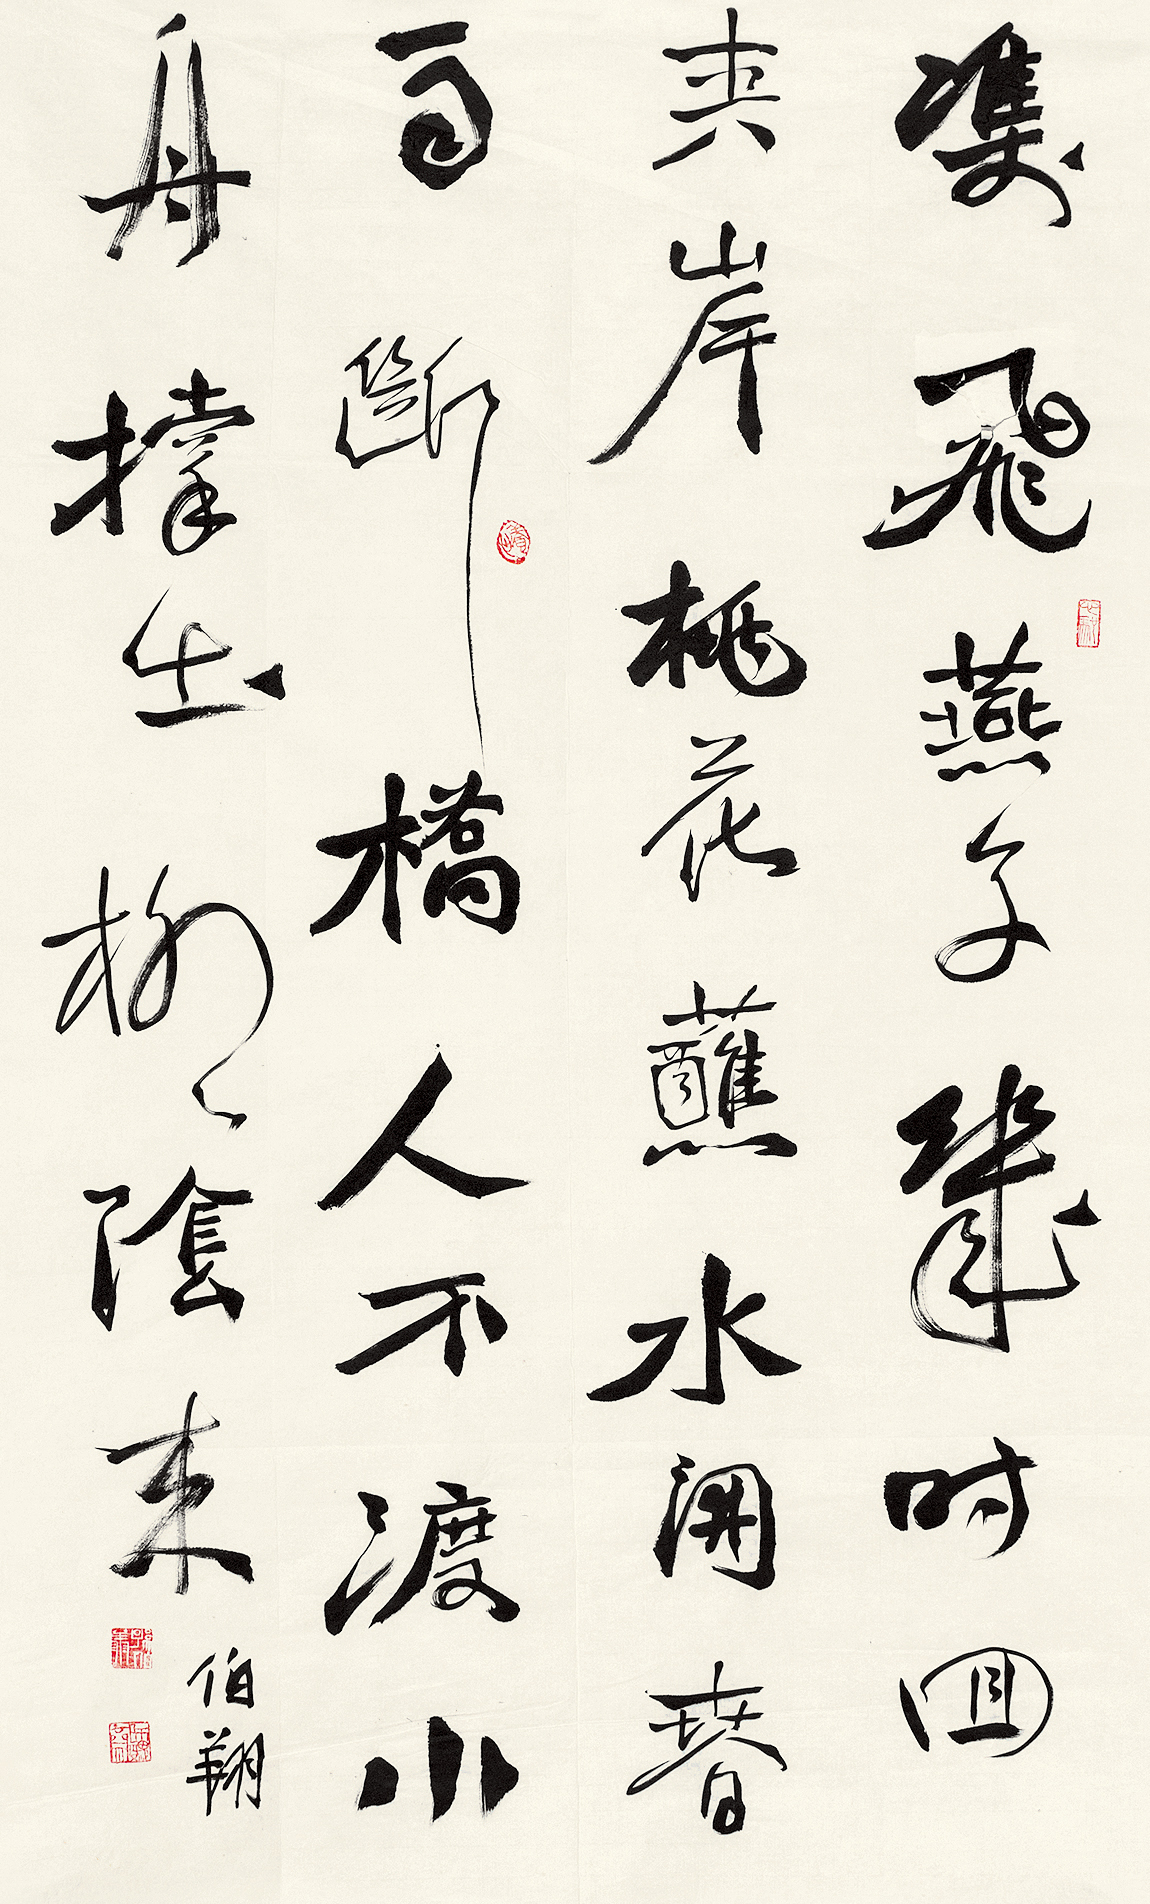 雙飛燕子幾時回
夾岸桃花蘸水開春
雨斷橋人不渡小
舟撑出柳陰来
伯翔